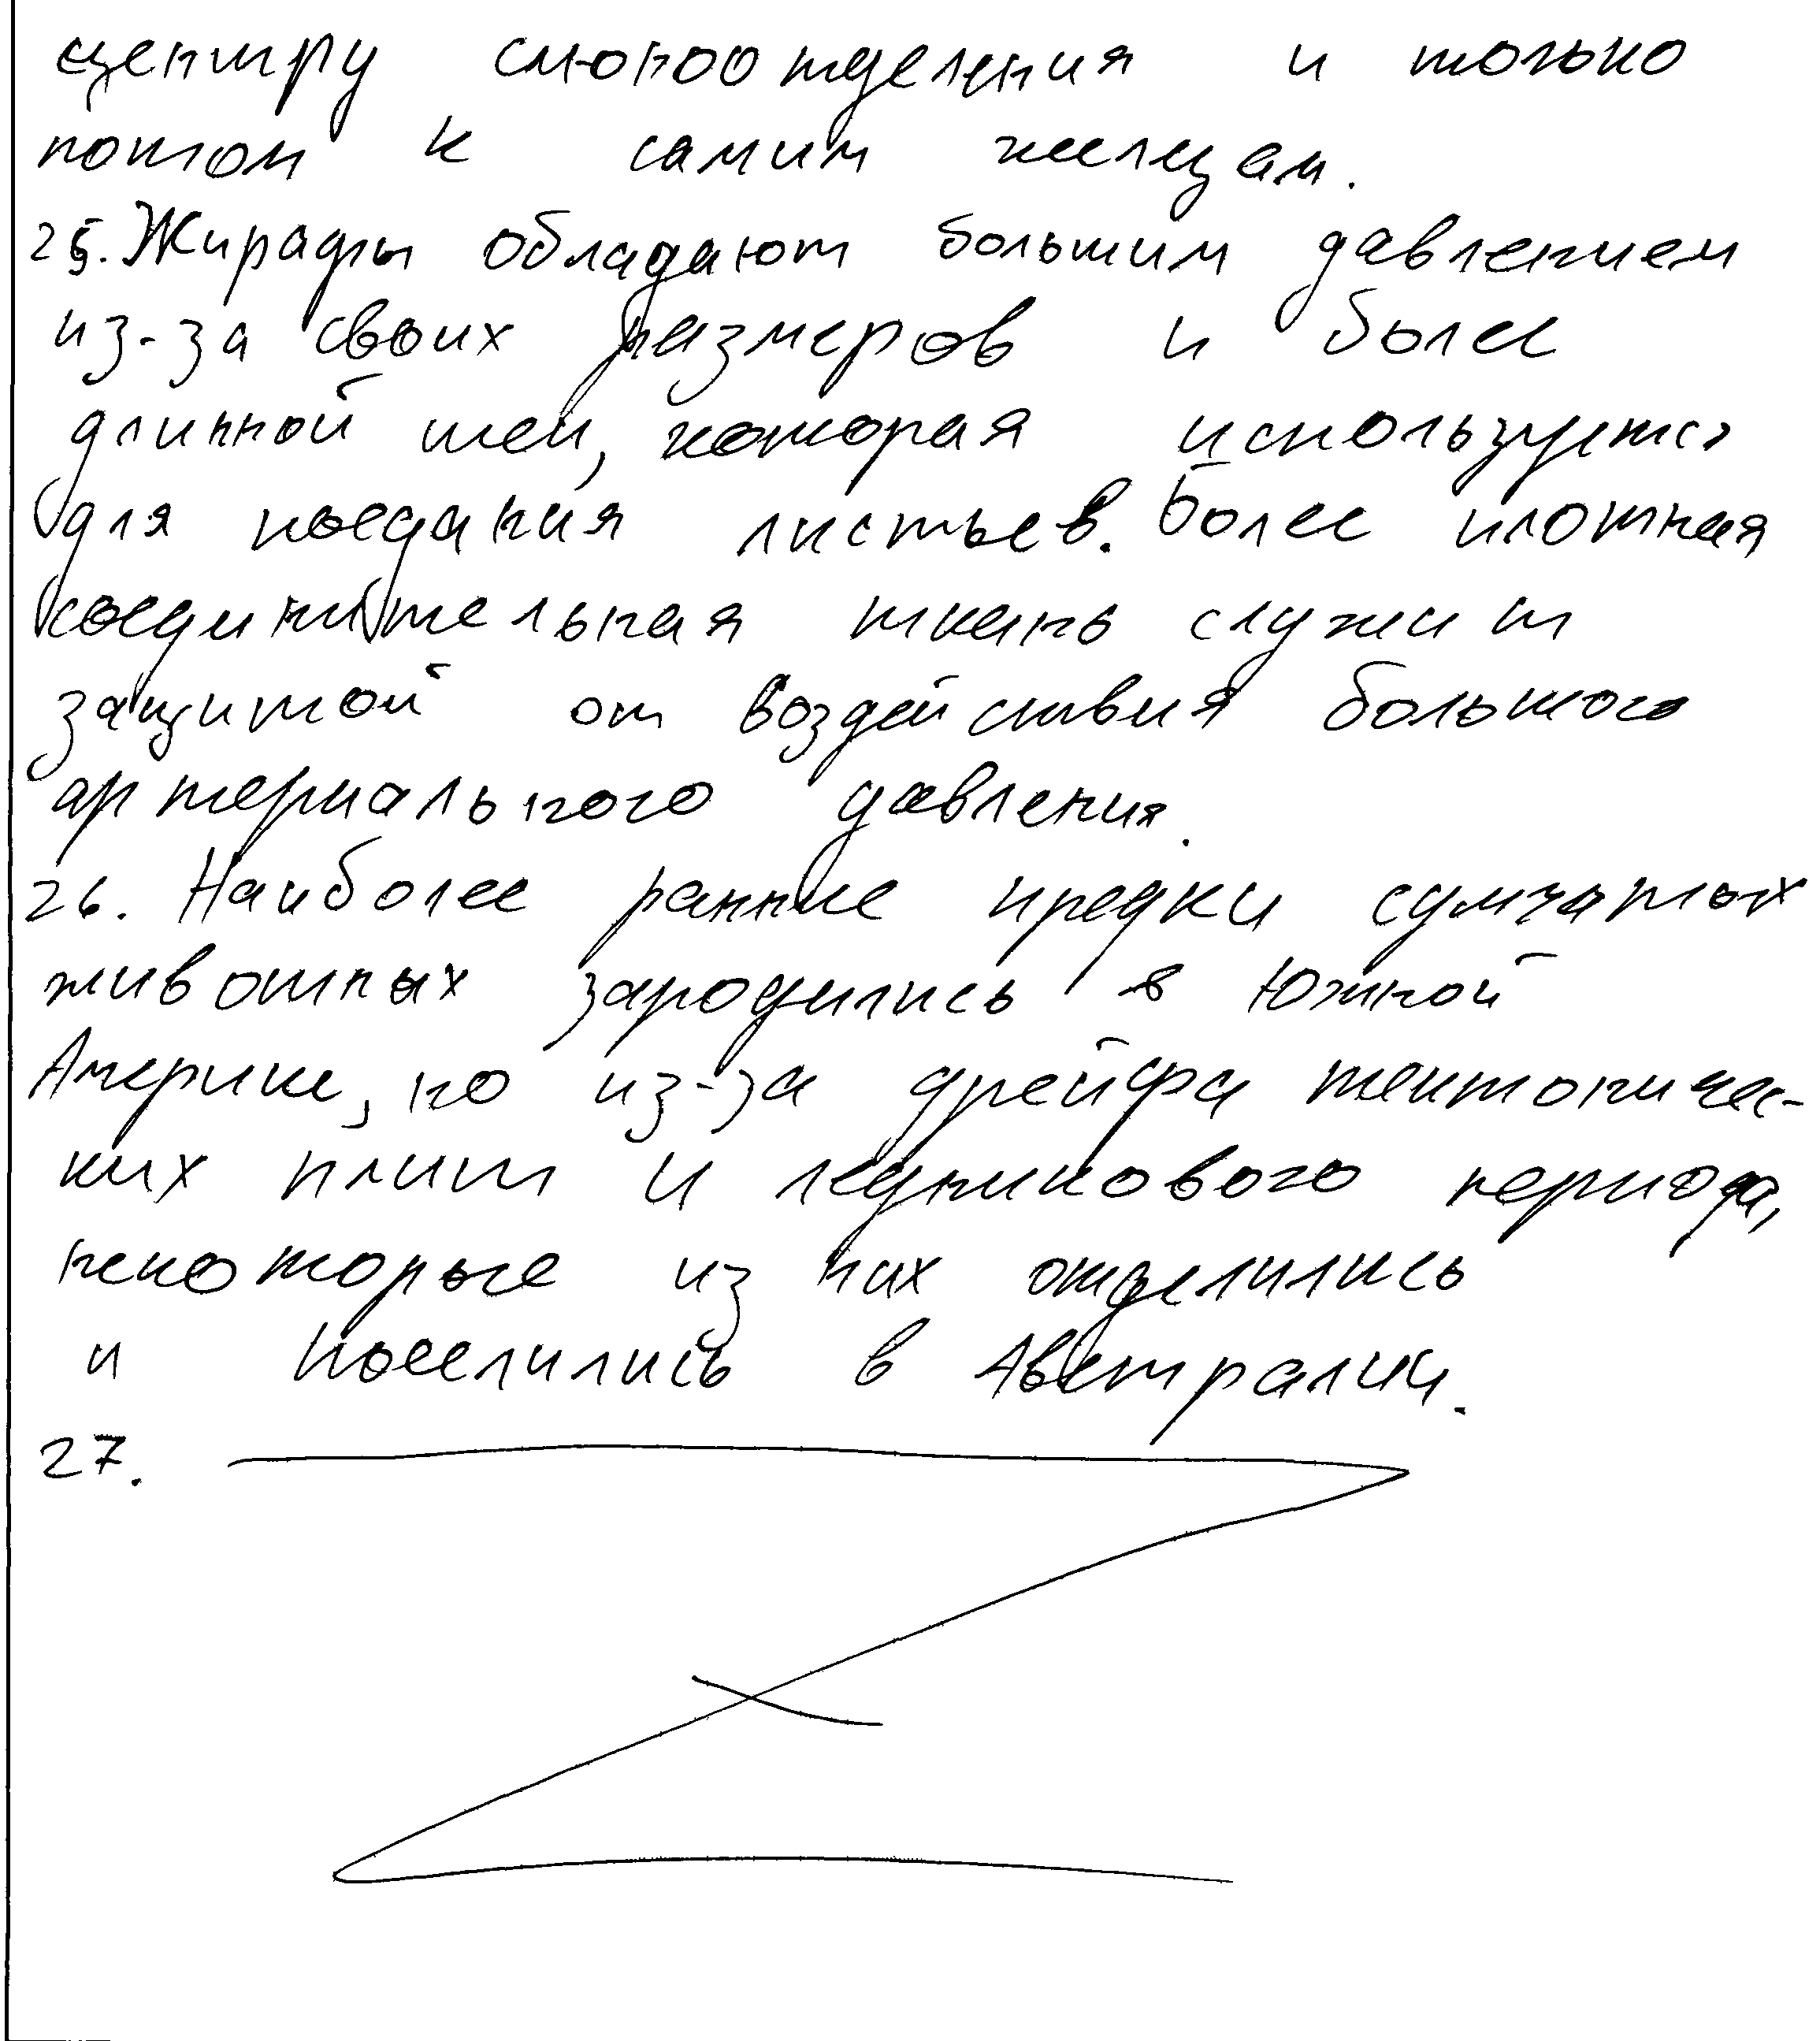 центру слюноотделения и только
потом к самим железам.
25. Жирафы обладают большим давлением
из-за своих размеров и более
длинной шеи, которая используется
для поедания листьев. Более плотная
соединительная ткань служит
защитой от воздействия большого
артериального давления.
26. Наиболее ранние предки сумчатых
животных зародились в Южной
Америке, но из-за дрейфа тектоничес-
ких плит и ледникового периода,
некоторые из них отделились
и поселились в Австралии.
27.